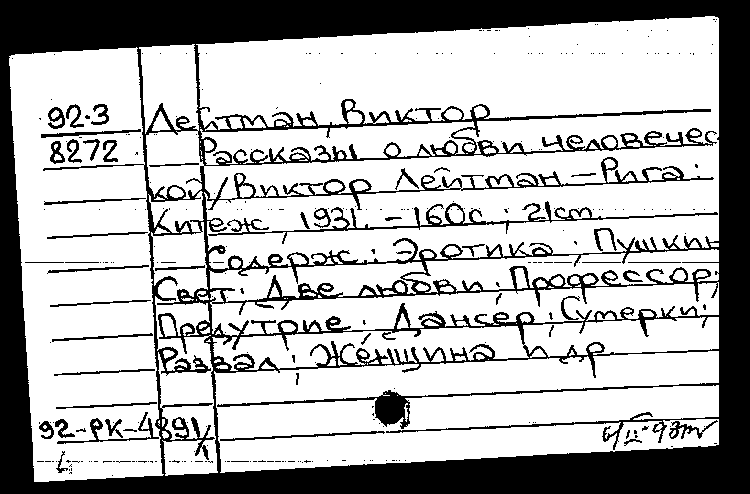 92-3 Лейтман, Виктор
8272 Рассказы о любви человечес
кой/Виктор Лейтман – Рига:
Китеж, 1931. – 160с.; 21cm.
Содерж.: Эротика; Пушкин
Свет; Две любви; Профессор;
Предутрие; Дансер; Сумерки;
Развал; Женщина и др
92-РК-4891